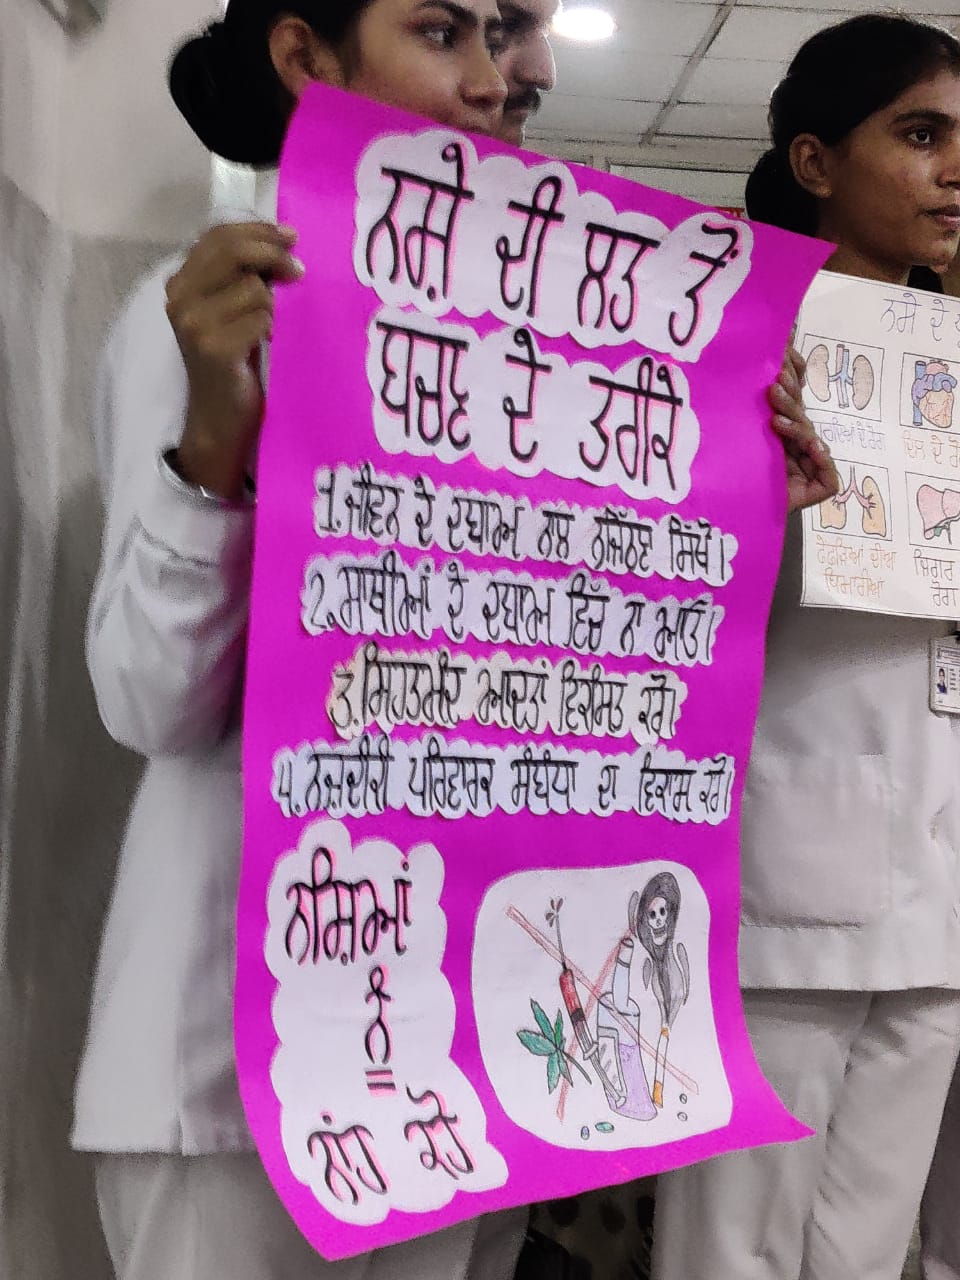 ਨਸ਼ੇ ਦੀ ਲਤ ਤੋਂ
ਬਚਣ ਦੇ ਤਰੀਕੇ
1. ਜੀਵਨ ਦੇ ਦਬਾਅ ਨਾਲ ਨਜਿੱਠਣ ਸਿੱਖੋ।
2. ਸਾਥੀਆਂ ਦੇ ਦਬਾਅ ਵਿੱਚ ਨਾ ਆਓ।
3. ਸਿਹਤਮੰਦ ਆਦਤਾਂ ਵਿਕਸਿਤ ਕਰੋ।
4. ਨਜ਼ਦੀਕੀ ਪਰਿਵਾਰਕ ਸੰਬੰਧਾ ਦਾ ਵਿਕਾਸ ਕਰੋ।
ਨਸ਼ਿਆਂ
ਨੂੰ
ਨਾਂਹ ਕਹੋ
ਨਸ਼ੇ ਦੇ
ਦਿਲ ਦੇ
ਫੇਫੜਿਆਂ ਦੀਆ
ਬਿਮਾਰੀਆ
ਜਿਗਰ
ਰੋਗ